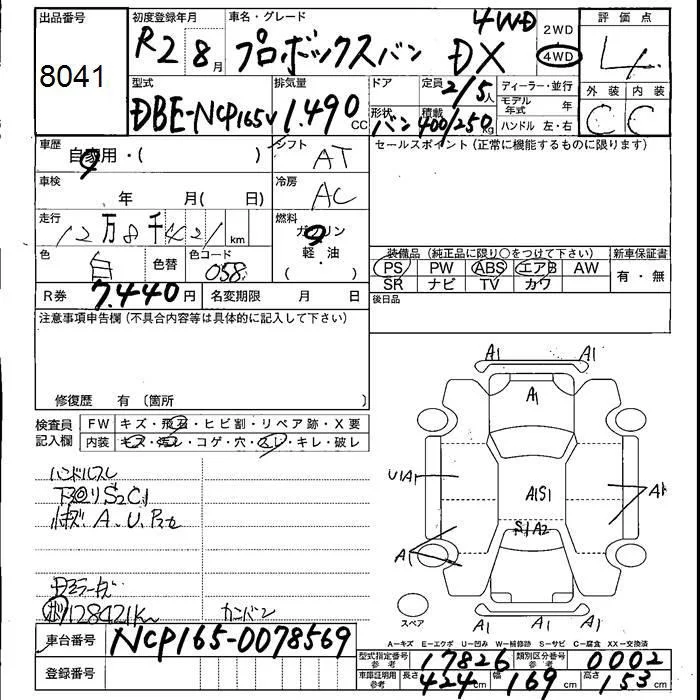 出品番号
8041
初度登録年月
R2 8月
車名・グレード
プロボックスバン DX 4WD
2WD
4WD
評価点
4
外装 内装
C C
型式
DBE-NCP165V
排気量
1.490 CC
ドア
形状
バン
定員
2/5人
積載
400/250kg
ディーラー・並行
モデル年式 年
ハンドル 左・右
車歴
自家用・( )
シフト
AT
セールスポイント(正常に機能するものに限ります)
車検
年 月( 日)
冷房
AC
走行
12万8千421km
燃料
ガソリン
軽・油
( )
色
白
色替
色コード
058
装備品(純正品に限り○をつけて下さい)
PS PW ABS エアB AW
SR ナビ TV カワ
新車保証書
有・無
R券 7.440円
名変期限 月 日
後日品
注意事項申告欄(不具合内容等は具体的に記入して下さい)
修復歴 有〔箇所
検査員記入欄
FW キズ・飛石・ヒビ割・リペア跡・X要
内装 キズ・汚レ・コゲ・穴・スレ・キレ・破レ
ハンドルスレ
下回りS2C1
小キズ A.U.
128421Km
カンバン
A1 A1
A1
U1A1
A1S1
A1
S1A2
A1
A1 A1
スペア
A-キズ E-エクボ U-凹み W-補修跡 S-サビ C-腐食 XX-交換済
車台番号 NCP165-0078569
登録番号
型式指定番号 参考 17826
類別区分番号 参考 0002
車庫証明用 参考 長さ 424cm 幅 169cm 高さ 153cm